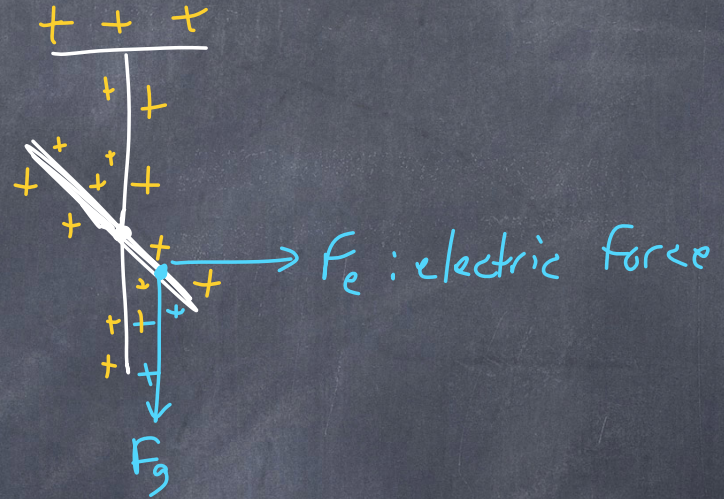 + + +
+ +
+
+ + + +
+
+
+ +
+ +
+ +
+ +
Fe : electric force
Fg